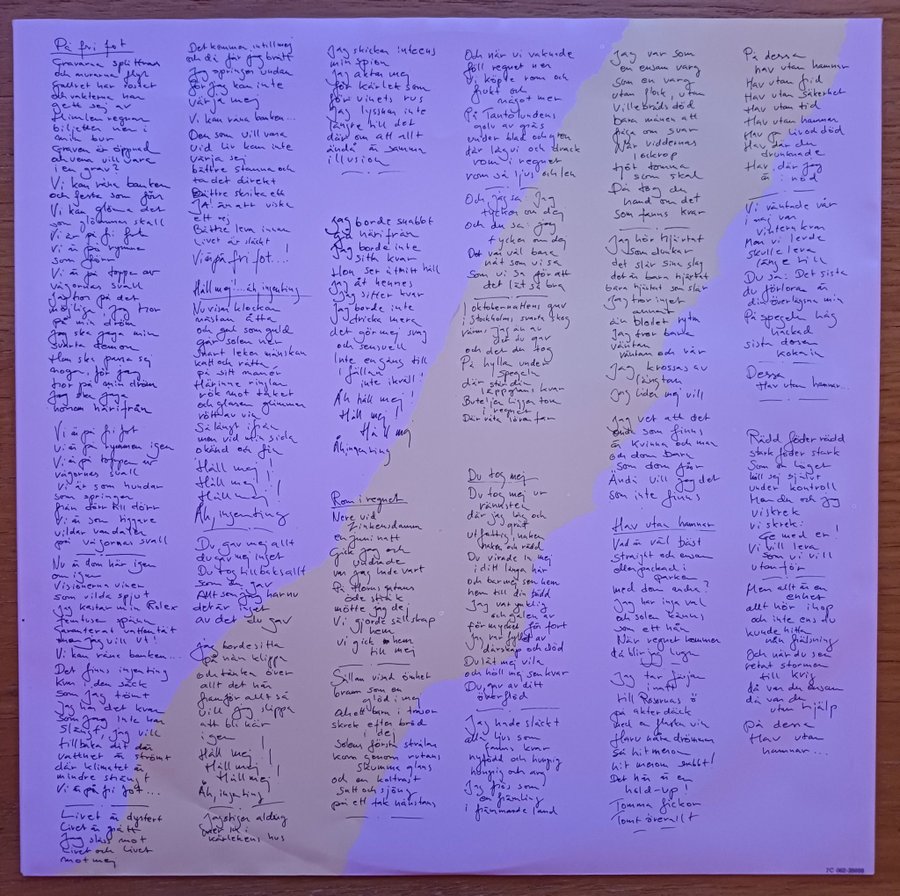 På fri fot
Gravarna splittras
och murarna flyr
Gallret har rostat
och vakterna har
gett sej av
Himlen regnar
biljetten men i
Graven är öppnad
och vem vill vara
i en grav?
Vi kan råna banken
och festa som förr
Vi kan glömma det
som glömmas skall
Vi är på fri fot
Vi är på rymmen
som förr
Vi är på toppen av
vågornas svall
Jag tror på det
möjliga, jag tror
på min dröm
Jag ska jaga min
svarta demon
Han ska passa sej
noga, för jag
tror på min dröm
Jag ska jaga
honom härifrån
Vi är på fri fot
Vi är på rymmen igen
Vi är på toppen av
vågornas svall
Vi är som hundar
som springer
från dörr till dörr
Vi är som riggare
vildar vandaler
på vågornas svall
Nu är dom här igen
om igen
Visionerna viner
som vilda spjut
Jag kastar min Rolex
femtusen spänn
Garanterat vattentät
men jag vill ut!
Vi kan råna banken...
Det finns ingenting
kvar i den säck
som jag tömt
Jag har det kvar
som jag inte har
slängt, jag vill
tillbaka dit där
vattnet är strömt
där klimatet är
mindre strängt
Vi är på fri fot...
Livet är dystert
Livet är grått
Jag slåss mot
Livet och Livet
mot mej
Det kommer intill mej
och då får jag brått
Jag springer undan
för jag kan inte
värja mej
Vi kan råna banken...
Den som vill vara
vid liv kan inte
värja sej
bättre stanna och
ta det direkt
Bättre skrika ett
JA! än att viska
ett nej
Bättre leva innan
livet är släckt
Vi är på fri fot....!
Håll mej!..äh, ingenting
Nu visar klockan
nästan åtta
och gul som guld
går solen ner
Snart leker människan
katt och råtta
på sitt manér
Här inne ringlar
rök mot taket
och glasen glimmar
rött av vin
Så långt ifrån
men vid min sida
okänd och fin
Håll mej!
Håll mej!
Håll mej!
Äh, ingenting
Du gav mej allt
du gav mej inget
Du tog tillbaks allt
som du gav
Allt som jag har nu
det är inget
av det du gav
Jag borde sitta
på nån klippa
och tänka över
allt det här
framför allt så
vill jag slippa
att bli här
igen
Håll mej!
Håll mej!
Håll mej!
Äh, ingenting
Jag stiger aldrig
mer in i
kärlekens hus
Jag skickar inte ens
min spion
Jag aktar mej
för kärlek som
för vinets rus
Jag lyssnar inte
längre till det
där om att allt
ändå är samma
illusion
Jag borde snabbt
gå härifrån
Jag borde inte
sitta kvar
Hon ser åt mitt håll
jag åt hennes
Jag sitter kvar
Jag borde inte
dricka mera
det gör mej svag
och sensuell
Inte en gång till
i fällan
inte ikväll!
Äh håll mej!
Håll mej!
Håll mej
Äh, ingenting
Rom i regnet
Nere vid
Zinkensdamm
en juni natt
Gick jag och
undrade
var jag hade vart
På Hornsgatans
öde stråk
mötte jag dej
Vi gjorde sällskap
hem
vi gick hem
till mej
Sällan väckt önskat
bröd
i dej
Solens första strålar
kom genom rutans
skumma glas
och en koltrast
satt och sjöng
på ett tak nånstans
Och när vi vaknade
föll regnet ner
Vi köpte rom och
frukt och
något mer
På Tantolundens
golv av gräs
under blad och gren
där låg vi och drack
rom i regnet
rom så ljus och len
Och jag sa: Jag
tycker om dej
Och du sa: jag
tycker om dej
Det var väl bara
nåt som vi sa
Som vi sa för att
det lät så bra
I oktobernattens grav
i Stockholms svarta skog
värms jag än av
det du gav
och det du tog
På hylla under
spegeln
där står din
läppglans kvar
Buteljen ligger tom
i regnet
Där röta löven far
Du tog mej
Du tog mej ur
rännsten
där jag låg och
grät
utfattig, naken
naken och rädd
Du virade in mej
i ditt långa hår
och bar mej sen hem
hem till din bädd
Jag var yrklig
och galen av
för mycket för fort
Jag var fylld av
dårskap och död
Du lät mej vila
och höll mej sen kvar
Du gav av ditt
överflöd
Jag hade släckt
alla ljus som
fanns kvar
nyfödd och hungrig
hungrig och arg
Jag föds som
en främling
i främmande land
Jag var som
en ensam varg
som en varg
utan flock, utan
villebråds död
bara månen att
fråga om svar
När viddernas
lockrop
ljöt tomma
i som skal
Då tog du
hand om det
som fanns kvar
Jag hör hjärtat
som dunkar
det slår sina slag
det är bara hjärtat
bara hjärtat som slår
Jag tror inget
annat
än blodet ryta
Jag tror bara
väntan
väntan och vår
Jag krossas av
längtan
Jag lider mej vill
Jag vet att det
enda som finns
är kvinna och man
och dom bara
som dom får
Ändå vill jag det
som inte finns
Hav utan hamnar
Vad är väl bäst
straight och ensam
eller packad i
parken
med dom andra?
Jag har inga val
och solen känns
som ett hån
När regnet kommer
då blir jag lugn
Jag tar färjan
i natt
till Rosornas ö
på akterdäck
med en flaska vin
Havu nära drömmen
Så hit med om
hit med om snabbt!
Det här är en
hold-up!
Tomma fickor
Tomt överallt
På dessa
hav utan hamnar
Hav utan frid
Hav utan säkerhet
Hav utan tid
Hav utan hamnar
Hav på liv och död
Hav där du
drunknade
Hav där jag
är i nöd
Vi väntade vår
i maj var
vintern kvar
Men vi levde
skulle leva
länge till
Du sa: Det sista
du förlorar är
din överlägsna min
På spegeln låg
hackad
sista dosen
kokain
Dessa
Hav utan hamnar...
Rädd föder rädd
stark föder stark
Som en läget
håll sej självt
under kontroll
Men du och jag
vi skrek
vi skrek:
Ge med er!
Vi vill leva
som vi vill
utanför
Men allt är en
enhet
allt hör ihop
och inte ens du
kunde hitta
nån frälsning
Och när du sen
retat stormen
till krig
då var du ensam
då var du
utan hjälp
På dessa
Hav utan
hamnar...
7C 062-35898